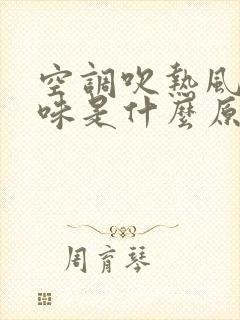 空調吹熱風
味是什麼原
周育琴